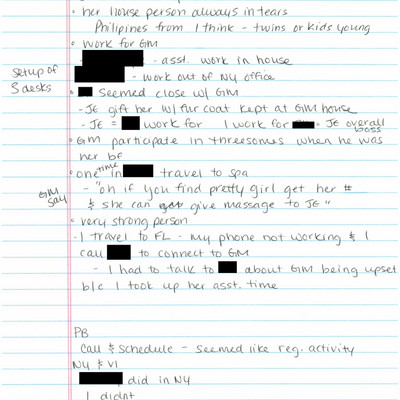 • her house person always in tears
Philipines from I think - twins or kids young
• work for GM
- asst. work in house
- work out of NY office
setup of
3 desks
• seemed close w/ GM
- JE gift her w/ fur coat kept at GM house
- JE = work for I work for = JE overall
boss
• GM participate in threesomes when he was
her bf
• one time in travel to spa
GM
say
- "oh if you find pretty girl get her #
& she can give massage to JE"
• very strong person
- I travel to FL - my phone not working & I
call to connect to GM
- I had to talk to about GM being upset
b/c I took up her asst. time
PB
call & schedule - seemed like reg. activity
NY & VI
did in NY
I didnt